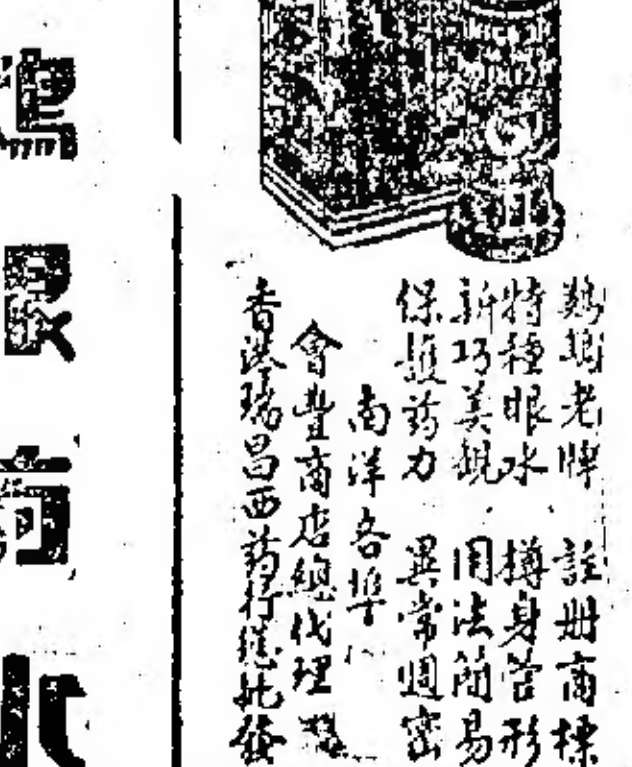 鷓鴣老牌 註册商標
特種眼水 樽身管形
新巧美觀 用法簡易
保護葯力 異常週密
南洋各埠
會豐商店總代理
香港瑞昌西葯行總批發
眼
水